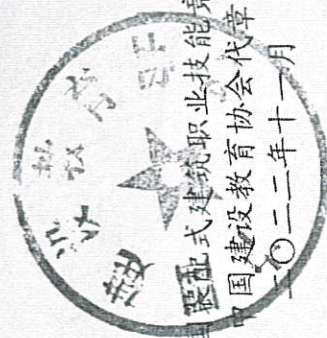 装配式建筑职业技能竞
中国建设教育协会代章
二〇二二年十一月